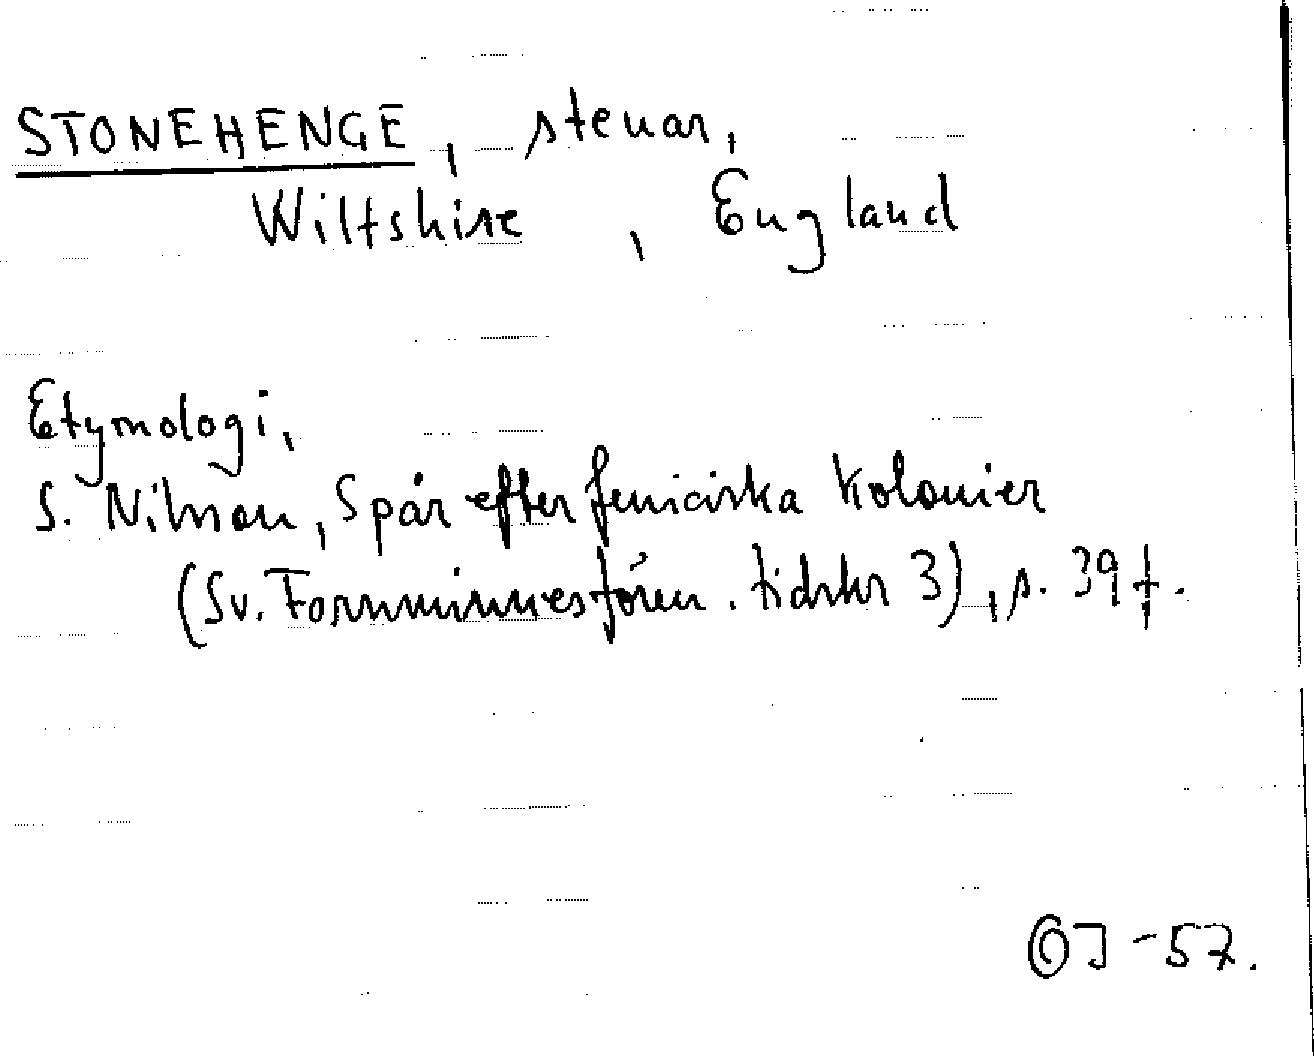 STONEHENGE, stenar,
Wiltshire, England
Etymologi,
S. Nilsson, Spår efter feniciska kolonier
(Sv. Fornminnesfören. tidskr 3), s. 39 f.
OJ -57.